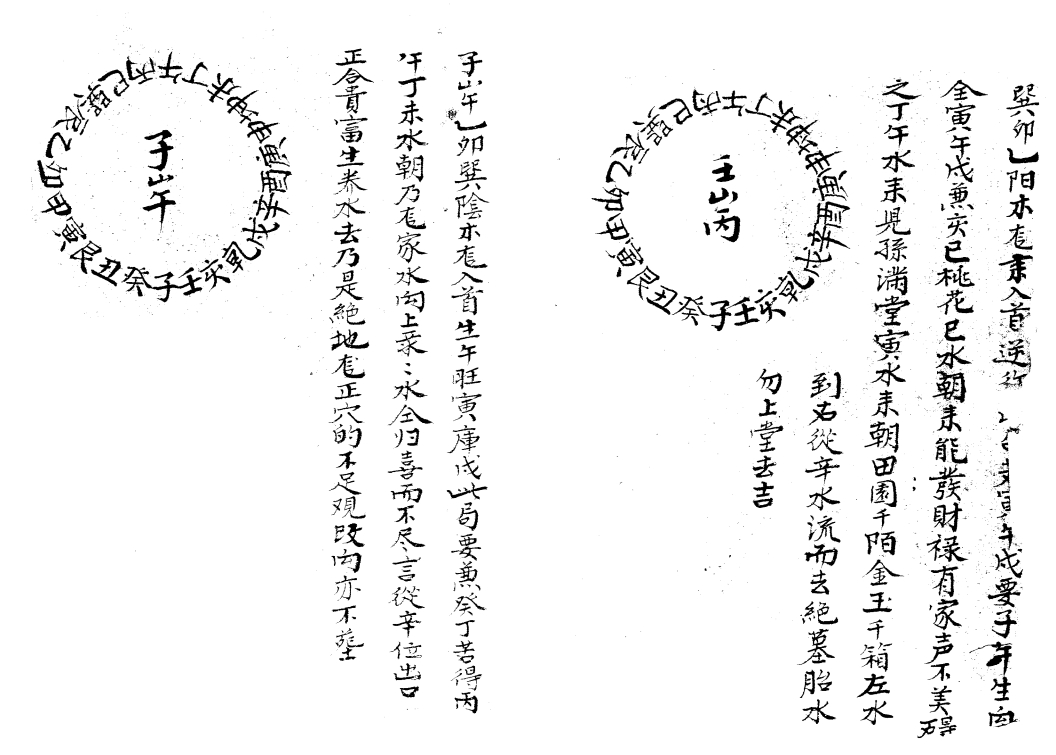 壬山丙
壬子癸丑艮寅甲卯乙辰巽巳丙午丁未坤申庚酉辛戌乾亥
巽卯阳木龙来入首逆行 午戌要子午生向
全寅午戌兼亥巳桃花巳水朝来能發財禄有家声不美碍
之丁午水来児孫满堂寅水来朝田園千陌金玉千箱左水
到右從辛水流而去絶墓胎水
勿上堂去吉
子山午
壬子癸丑艮寅甲卯乙辰巽巳丙午丁未坤申庚酉辛戌乾亥
子山午卯巽陰木龙入首生午旺寅庫戌此局要兼癸丁若得丙
午丁未水朝乃龙家水向上来〻水全归喜而不尽言從辛位出口
正合貴富生养水去乃是絶地龙正穴的不足观改向亦不塟